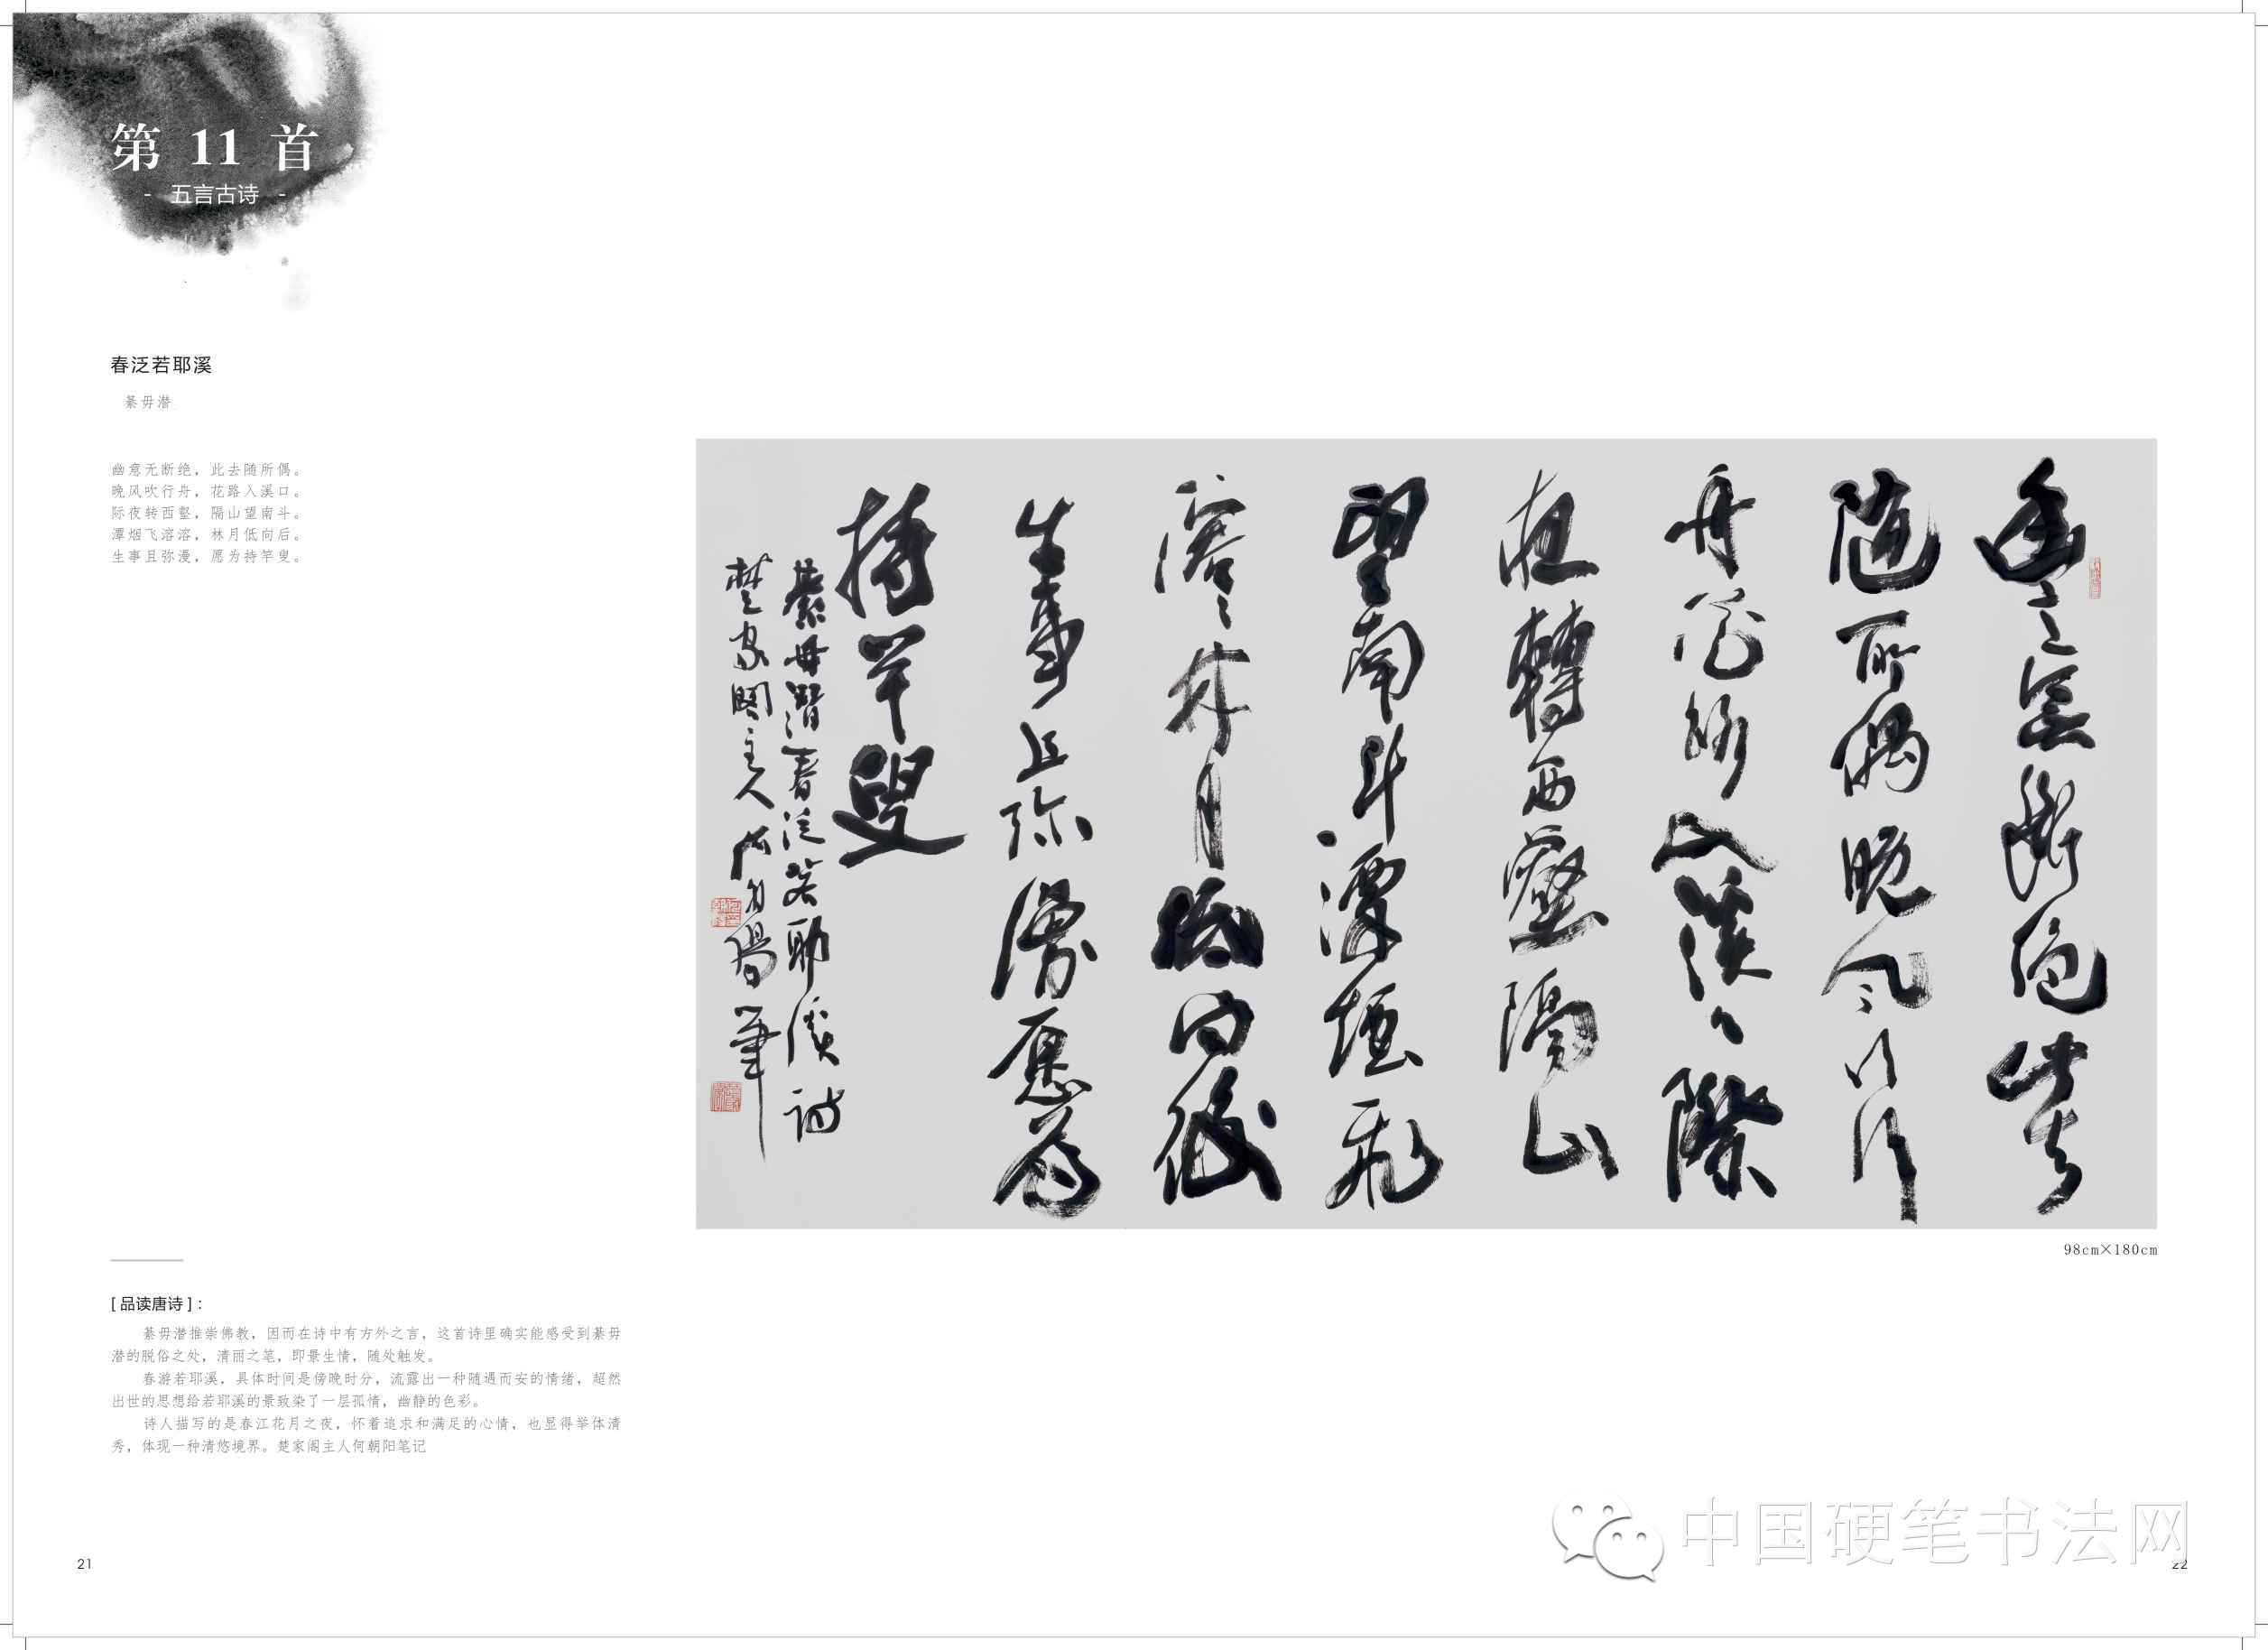 第 11 首
- 五言古诗 -
春泛若耶溪
綦毋潜
幽意无断绝，此去随所偶。
晚风吹行舟，花路入溪口。
际夜转西壑，隔山望南斗。
潭烟飞溶溶，林月低向后。
生事且弥漫，愿为持竿叟。
幽意無斷绝此去
随所偶晚风吹行
舟花路入溪口際
夜轉西壑隔山
望南斗潭煙飛
溶々林月低向後
生事且弥漫愿為
持竿叟
綦毋潛春泛若耶溪詩
楚家閣主人何朝陽筆
98cm×180cm
[ 品读唐诗 ]：
綦毋潜推崇佛教，因而在诗中有方外之言，这首诗里确实能感受到綦毋
潜的脱俗之处，清丽之笔，即景生情，随处触发。
春游若耶溪，具体时间是傍晚时分，流露出一种随遇而安的情绪，超然
出世的思想给若耶溪的景致染了一层孤情，幽静的色彩。
诗人描写的是春江花月之夜，怀着追求和满足的心情，也显得举体清
秀，体现一种清悠境界。楚家阁主人何朝阳笔记
中国硬笔书法网
21
22